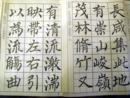 長咸集此地
有崇山峻嶺
茂林脩竹又
有清流激湍
映帶左右引
以為流觴曲